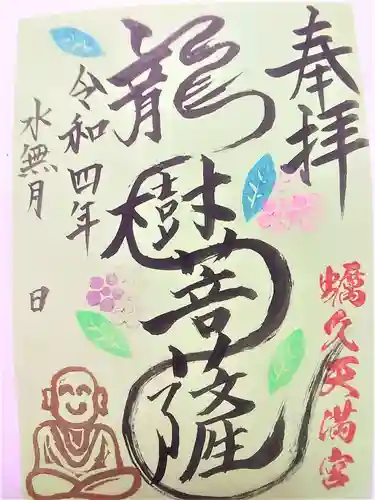 奉拝
龍樹菩薩
蠣久天満宮
令和四年
水無月 日